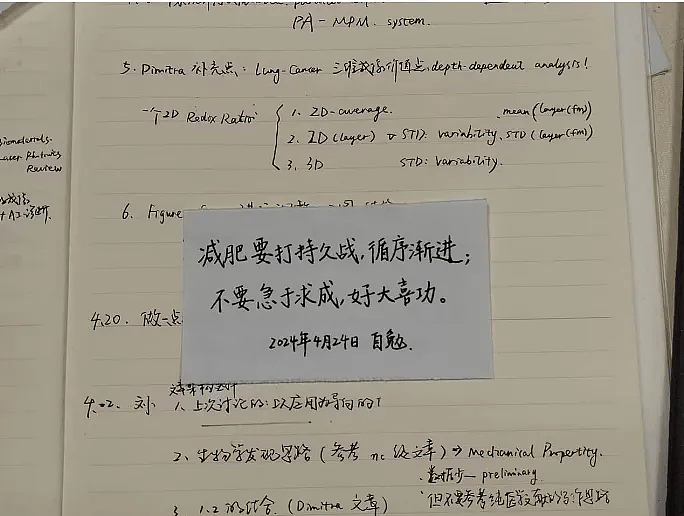 PA-MPM. system.
5. Dimitra 补充点: Lung-Cancer 三维成像价值点, depth-dependent analysis!
一个2D Redox Ratio:
1. 2D-average. mean(layer(fm)
2. 2D(layer) STD: variability. STD(layer(fm)
3. 3D STD: variability.
Biomaterials.
Laser Photonics
Review
6. Figure
减肥要打持久战,循序渐进;
不要急于求成,好大喜功。
2024年4月24日 自勉.
4.20. 做一点
1. 上次讨论的: 以应用为导向的
2. 生物学发现思路 (参考 nc 级文章) ⇒ Mechanical Propertity.
数据少— preliminary
3. 1.2 的结合. (Dimitra 文章)